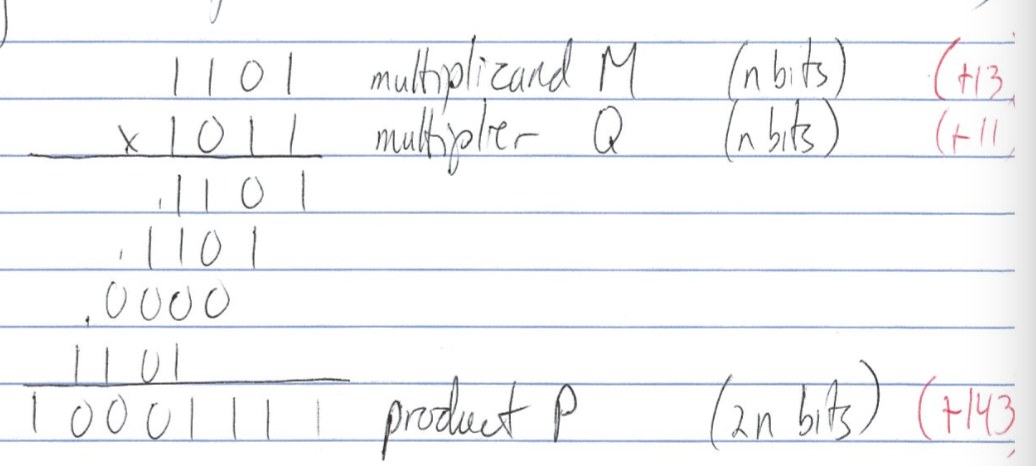 1101 multiplicand M (n bits) (+13
x 1011 multiplier Q (n bits) (+11
.1101
.1101
.0000
1101
10001111 product P (2n bits) (+143